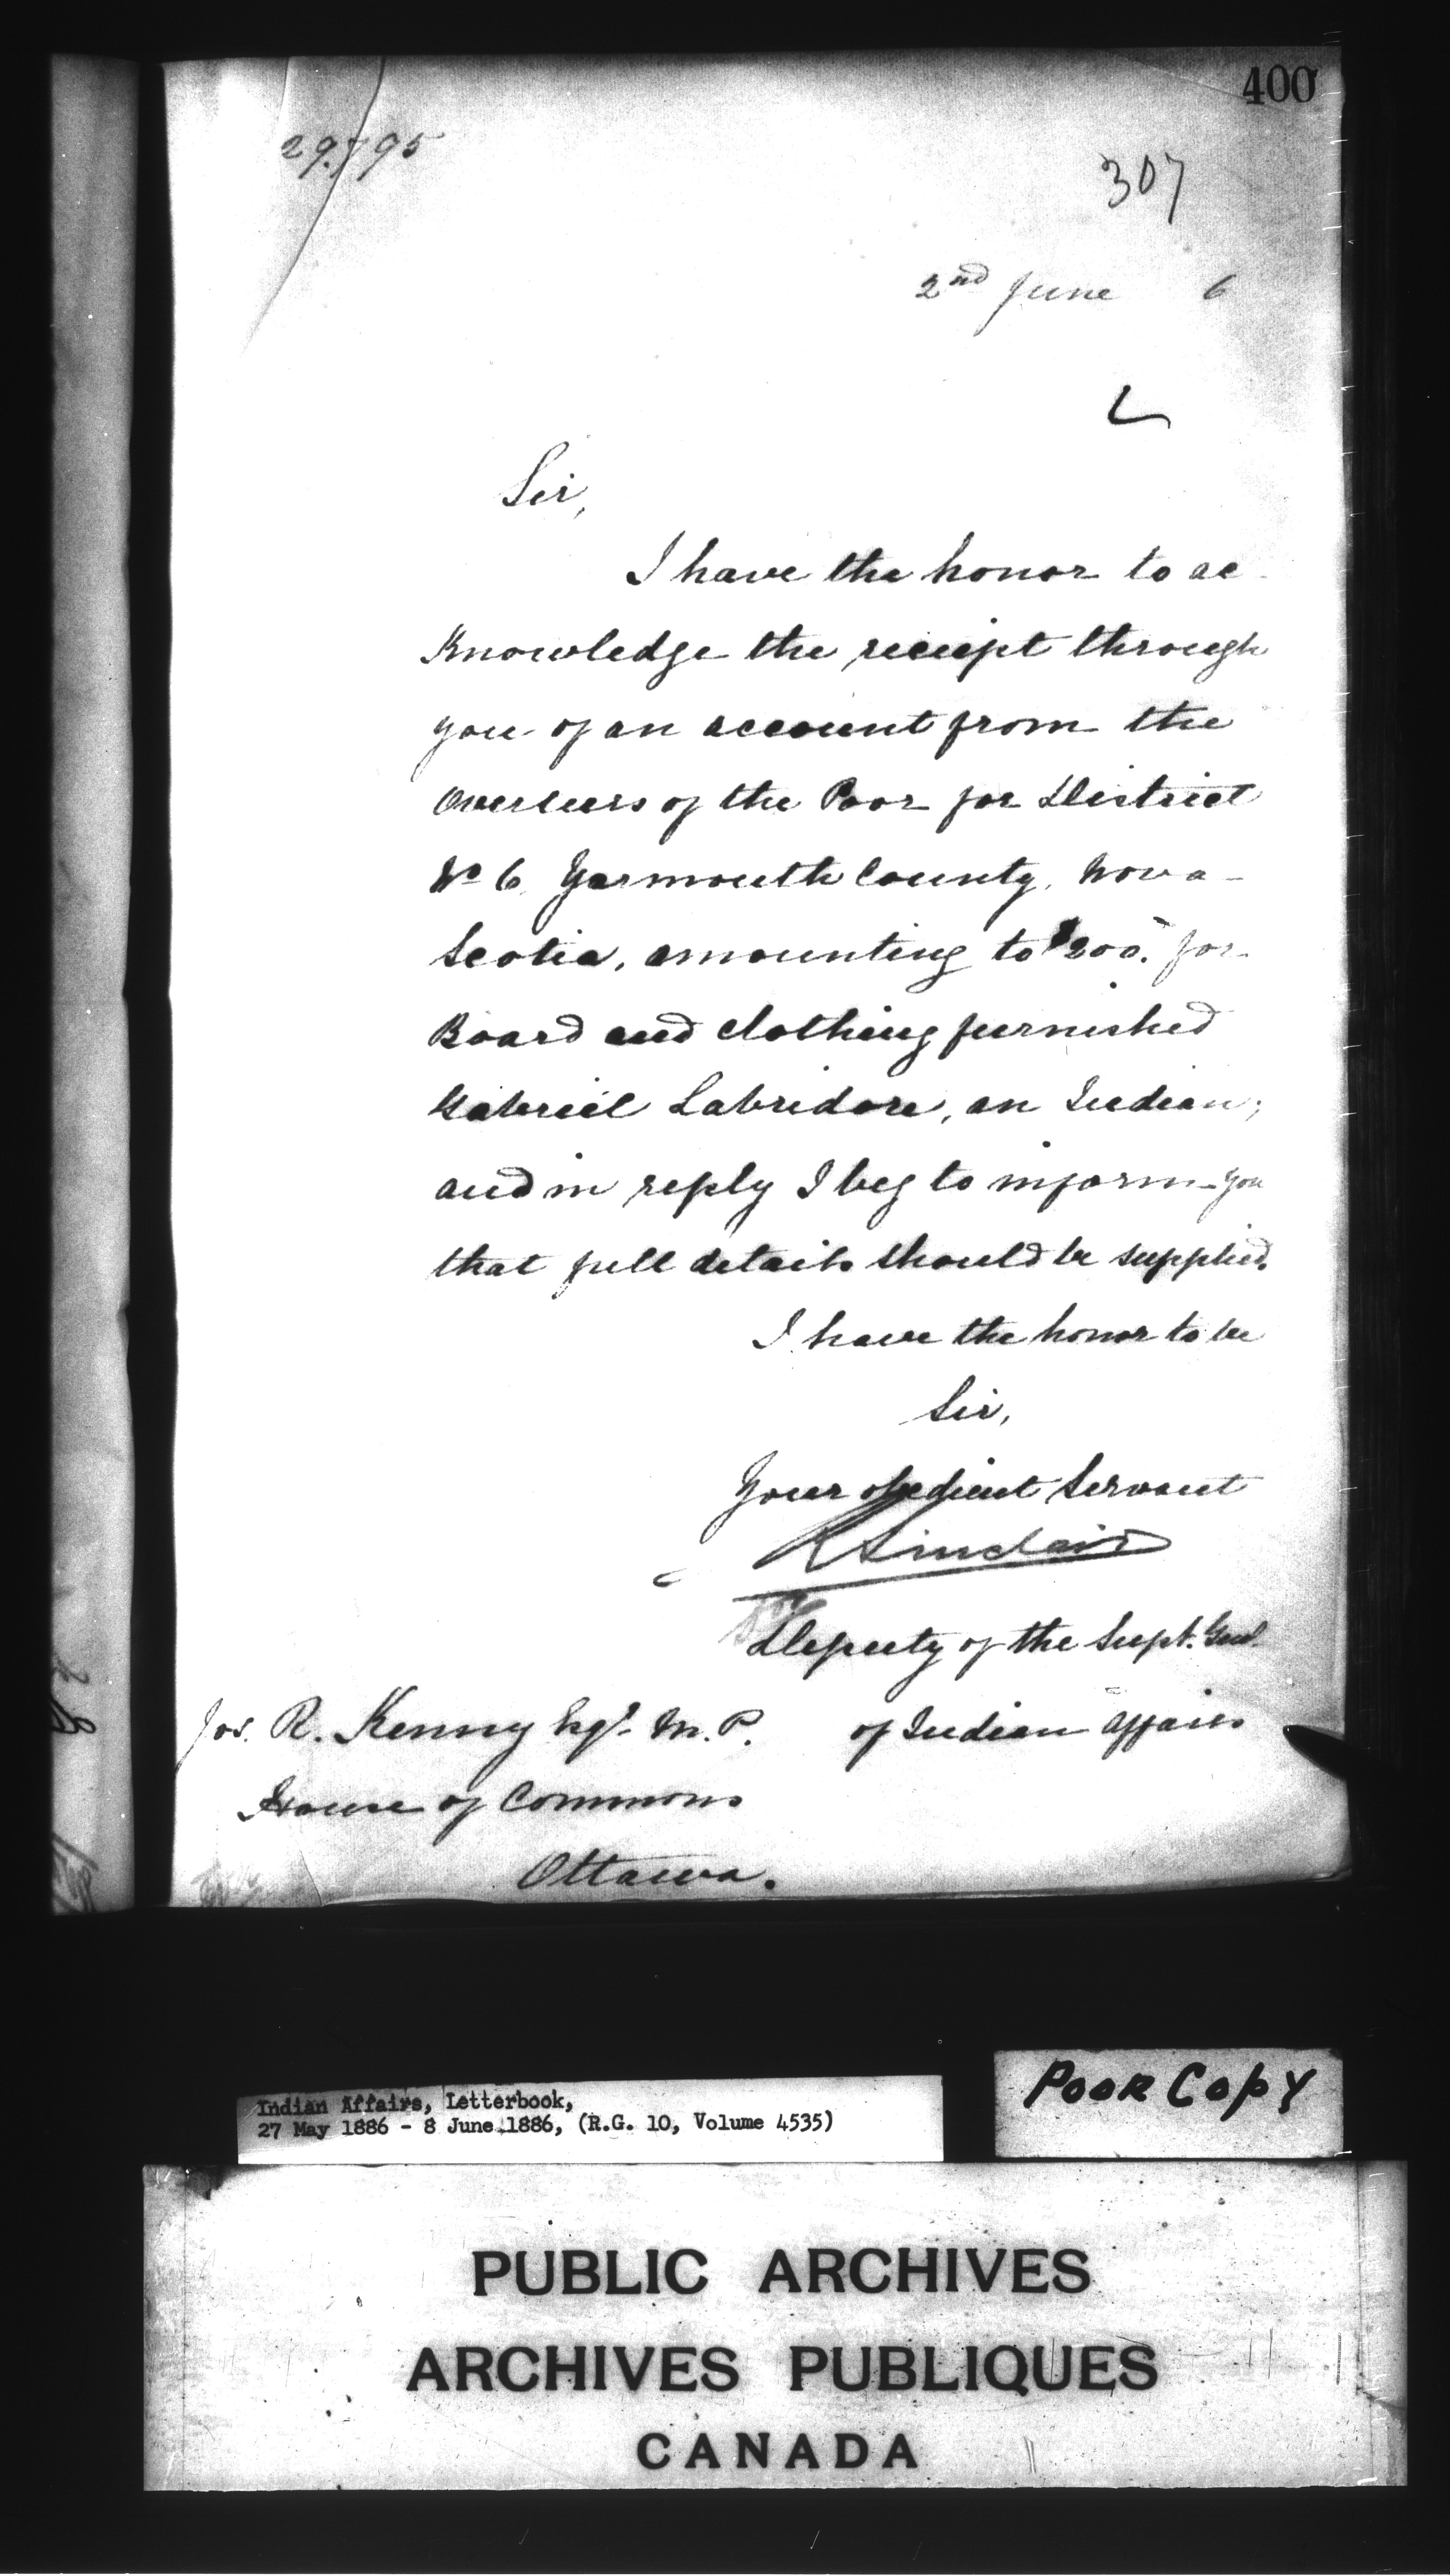 400
29,795
307
2nd June 6
Sir,
I have the honor to ac-
knowledge the receipt through
you of an account from the
Overseers of the Poor for District
No 6 Yarmouth County, Nova-
Scotia, amounting to $200. for
Board and clothing furnished
Gabriel Labridore, an Indian;
and in reply I beg to inform you
that full details should be supplied.
I have the honor to be
Sir,
Your obedient Servant
R Sinclair
Deputy of the Supt. Genl.
Jos. R. Kenny Esqr. M.P. of Indian Affairs
House of Commons
Ottawa.
Indian Affairs, Letterbook,
27 May 1886 - 8 June 1886, (R.G. 10, Volume 4535)
POOR COPY
PUBLIC ARCHIVES
ARCHIVES PUBLIQUES
CANADA